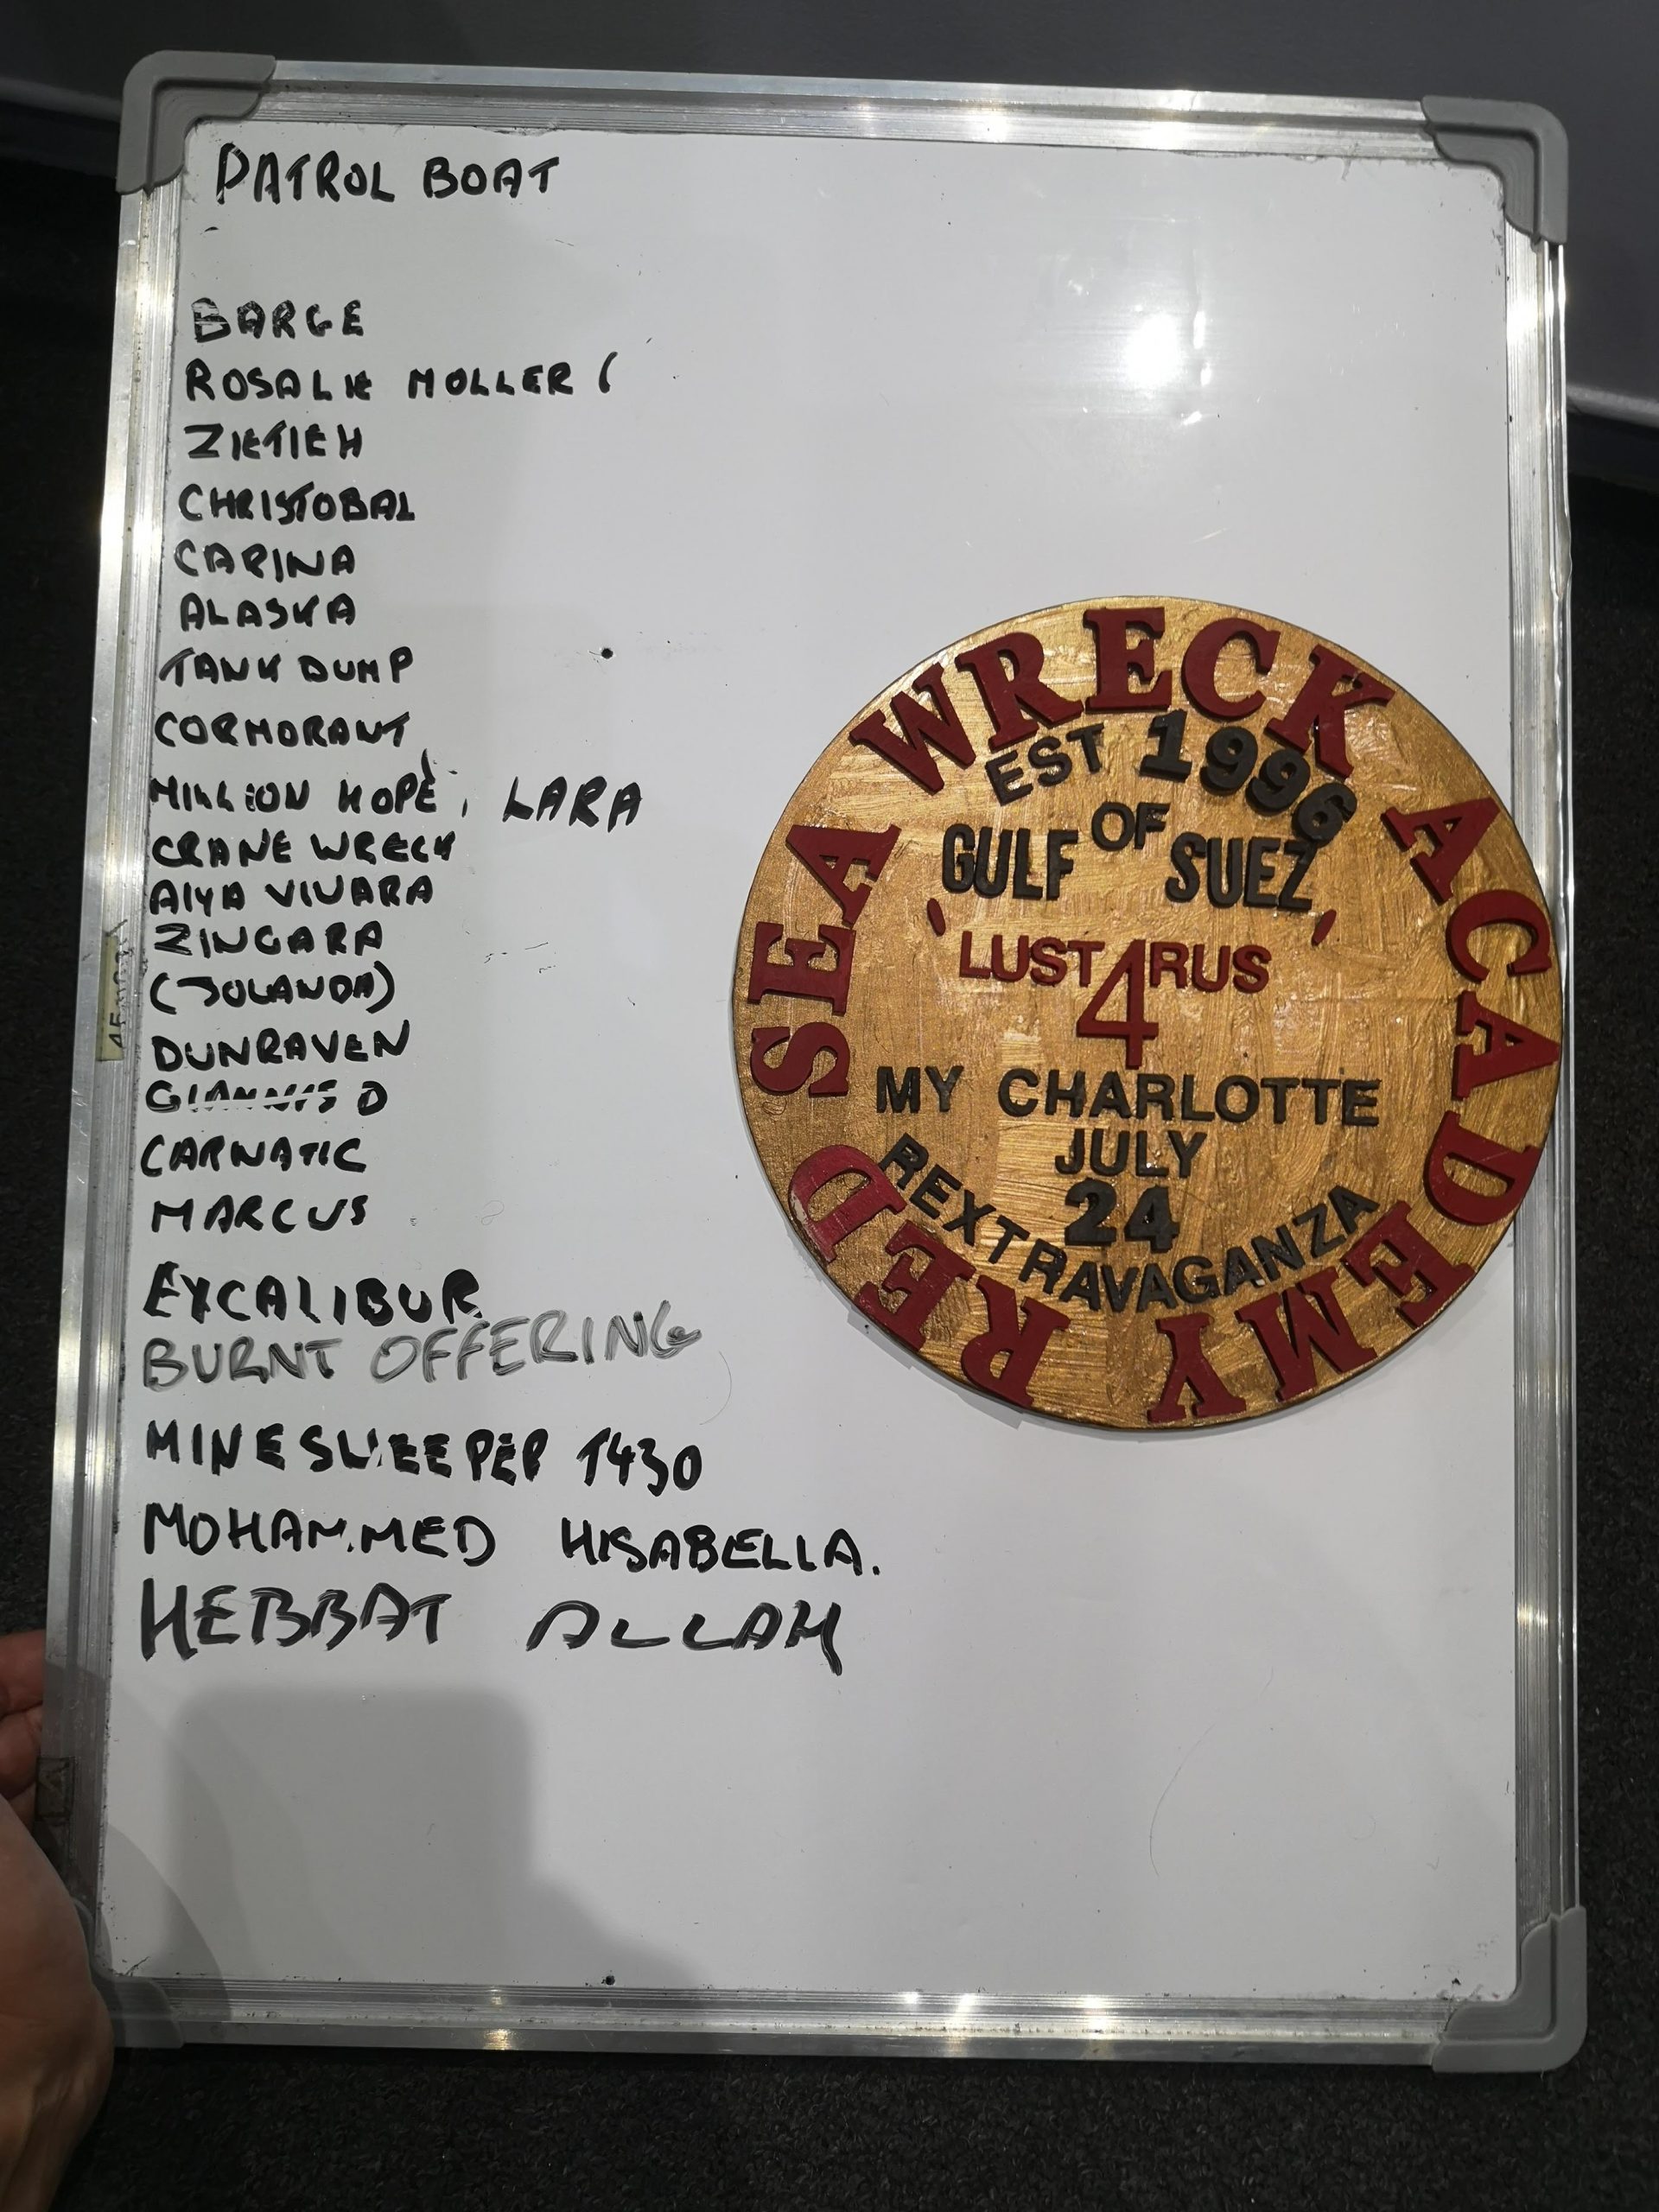 PATROL BOAT
BARGE
ROSALIE MOLLER (
ZIETIEH
CHRISTOBAL
CARINA
ALASKA
TANK DUMP
CORMORANT
MILLION HOPE, LARA
CRANE WRECK
AIYA VIVARA
ZINGARA
(JOLANDA)
DUNRAVEN
GIANNIS D
CARNATIC
MARCUS
EXCALIBUR
BURNT OFFERING
MINESWEEPER 1430
MOHAMMED HISABELLA.
HEBBAT ALLAH
RED SEA WRECK ACADEMY
EST 1996
OF
'GULF SUEZ'
LUST4RUS
MY CHARLOTTE
JULY
24
REXTRAVAGANZA